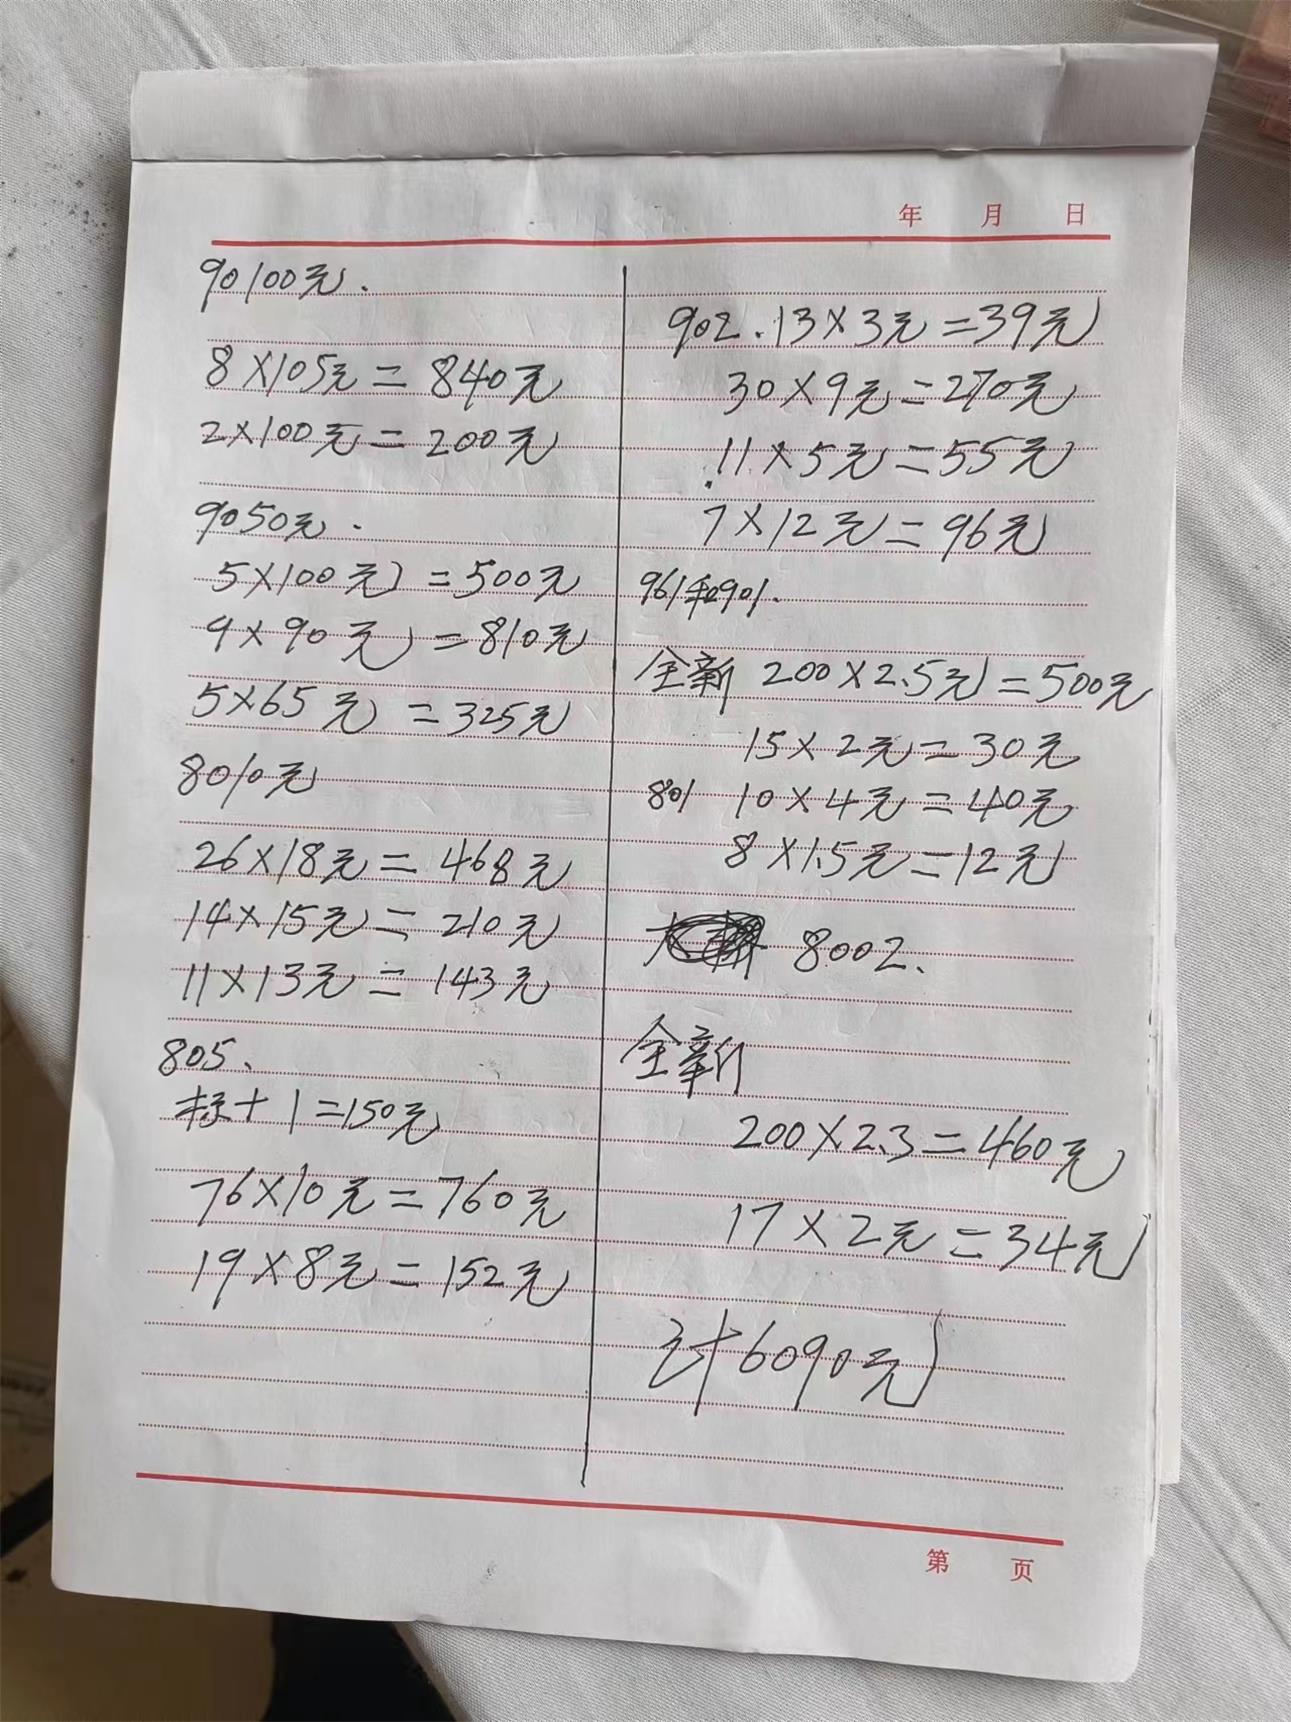 年 月 日
90100元.
8×105元=840元
2×100元=200元
9050元.
5×100元=500元
9×90元=810元
5×65元=325元
8010元
26×18元=468元
14×15元=210元
11×13元=143元
805、
标十1=150元
76×10元=760元
19×8元=152元
902.13×3元=39元
30×9元=270元
11×5元=55元
7×12元=96元
961和901.
全新 200×2.5元=500元
15×2元=30元
801 10×4元=40元
8×1.5元=12元
8002、
全新
200×2.3=460元
17×2元=34元
计6090元
第 页